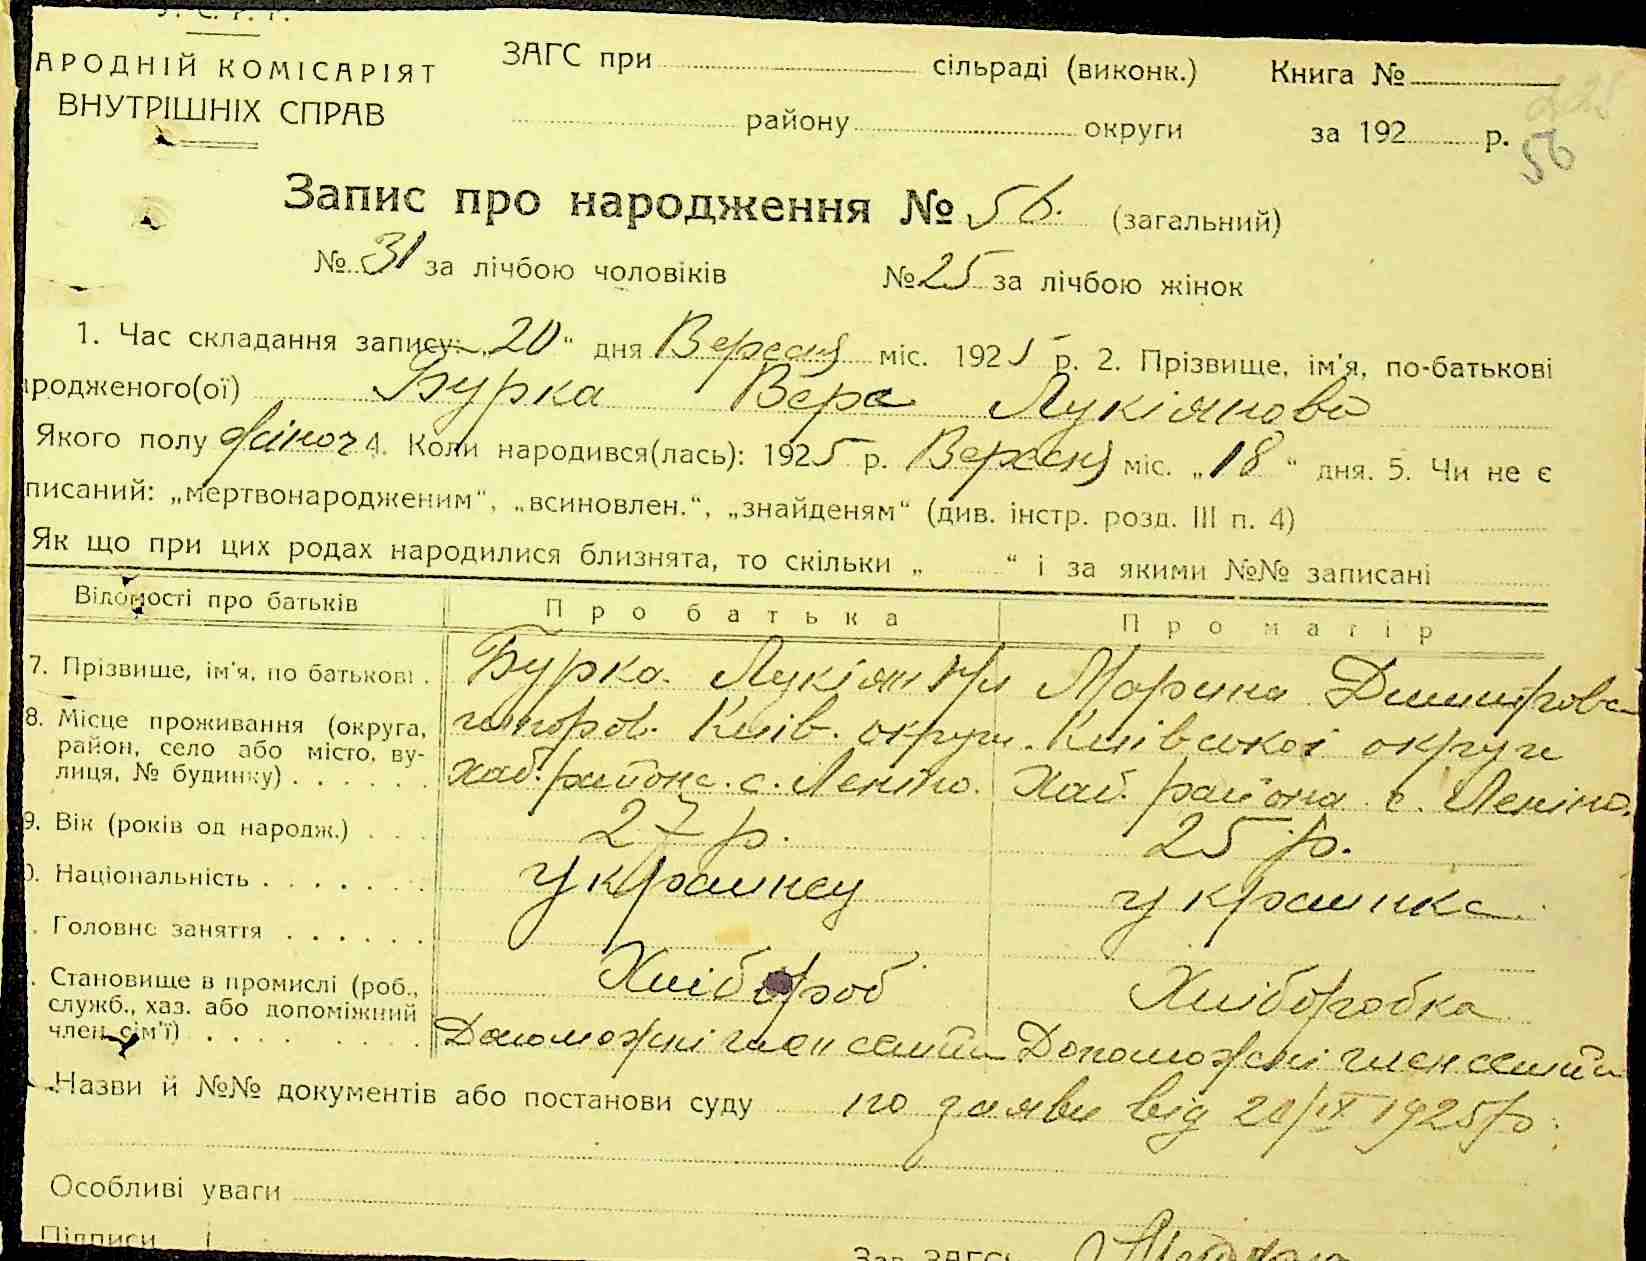 У. С. Р. Р.
АРОДНІЙ КОМІСАРІЯТ
ВНУТРІШНІХ СПРАВ
ЗАГС при сільраді (виконк.) Книга №
району округи за 192 р.
56
Запис про народження № 56. (загальний)
№ 31 за лічбою чоловіків № 25 за лічбою жінок
1. Час складання запису: „20“ дня Вересня міс. 1925 р. 2. Прізвище, ім'я, по-батькові
ародженого(ої) Бурка Вера Лукіянова
Якого полу жіноч 4. Коли народився(лась): 1925 р. Вересня міс. „18“ дня. 5. Чи не є
писаний: „мертвонародженим“, „всиновлен.“, „знайденям“ (див. інстр. розд. III п. 4)
Як що при цих родах народилися близнята, то скільки „ “ і за якими №№ записані
Відомості про батьків Про батька Про матір
7. Прізвище, ім'я, по батькові . Бурка Лукіян Марина Дмитрова
8. Місце проживання (округа, Київ. округи. Київської округи
район, село або місто, ву-
лиця, № будинку) . . . . . . Хаб. района. с. Леніно. Хаб. района с. Леніно.
9. Вік (років од народж.) . . . 27 р. 25 р.
0. Національність . . . . . . . украинец украинка
. Головне заняття . . . . . . Хлібороб Хлібородка
. Становище в промислі (роб.,
служб., хаз. або допоміжний
член сім'ї) . . . . . . . . . Допоможні член семти Допоможні член семти
Назви й №№ документів або постанови суду по заяви від 20/IX 1925 р.
Особливі уваги
Підписи
Зав. ЗАГС'ом